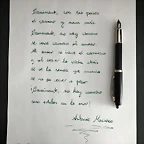 Caminante, son tus huellas
el camino y nada más;
Caminante, no hay camino
se hace camino al andar.
Al andar se hace el camino
y al volver la vista atrás
se ve la senda que nunca
se ha de volver a pisar.
Caminante, no hay camino
sino estelas en la mar!
Antonio Machado